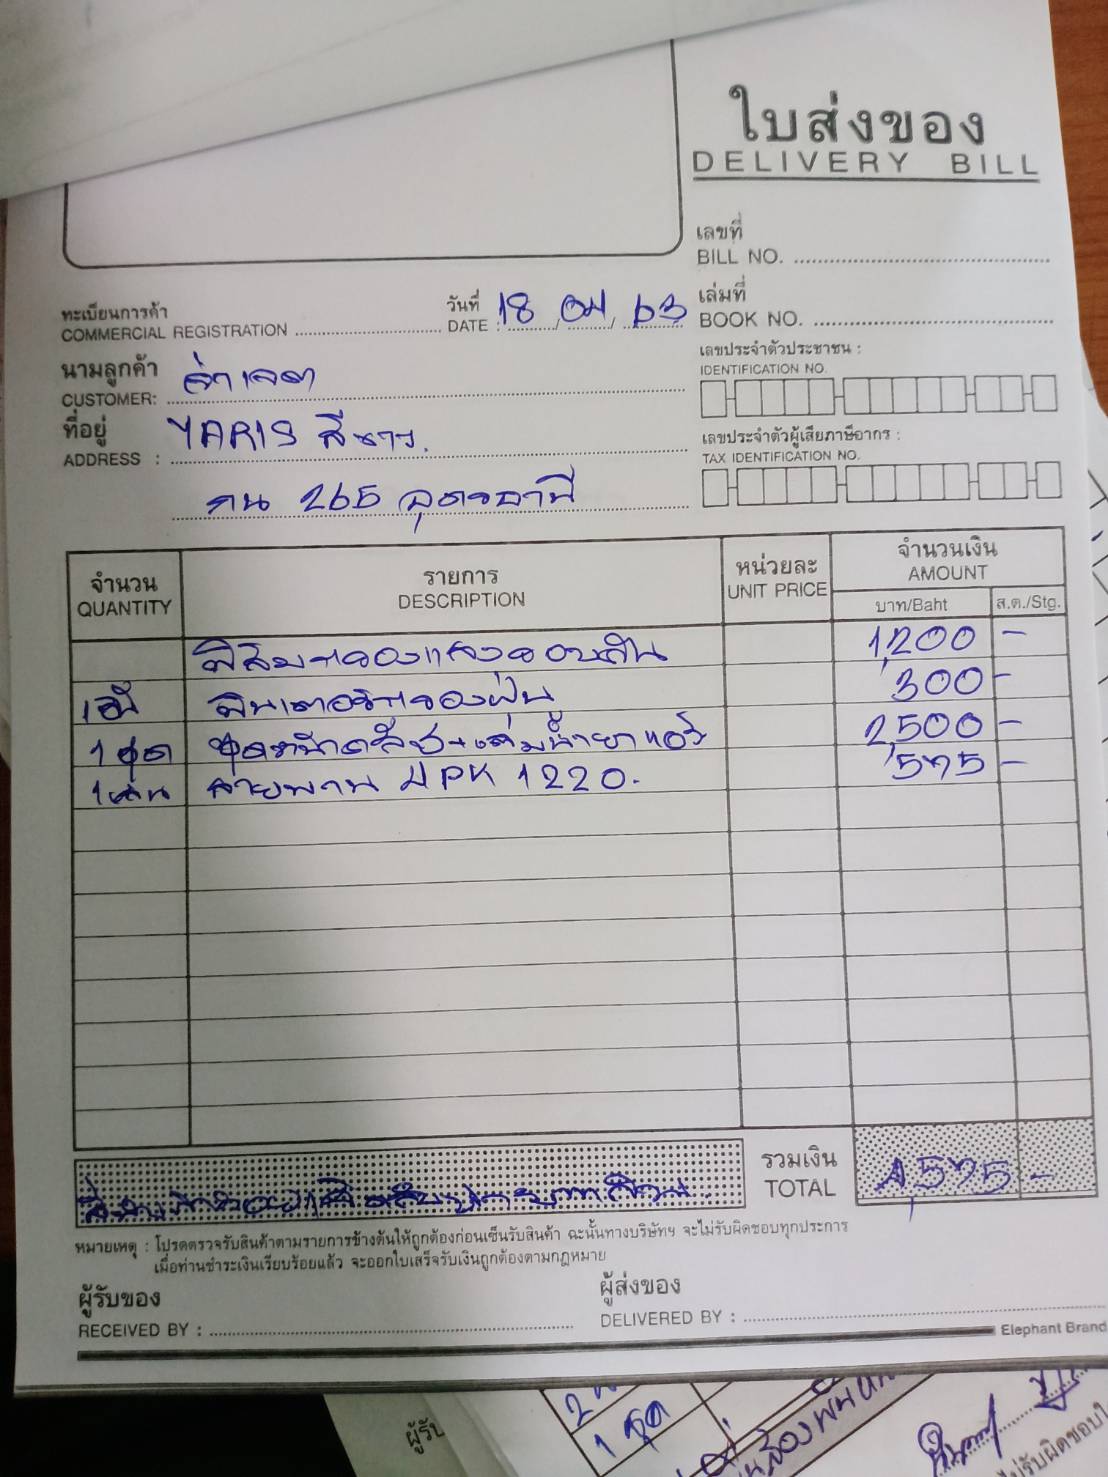 ใบส่งของ
DELIVERY BILL
เลขที่
BILL NO.
ทะเบียนการค้า
COMMERCIAL REGISTRATION
วันที่
DATE : 18 / 04 / 63
เล่มที่
BOOK NO.
นามลูกค้า
CUSTOMER: จ่าเจต
เลขประจำตัวประชาชน :
IDENTIFICATION NO.
ที่อยู่
ADDRESS : YARIS สีขาว.
เลขประจำตัวผู้เสียภาษีอากร :
TAX IDENTIFICATION NO.
กน 265 อุดรธานี
จำนวน
QUANTITY
รายการ
DESCRIPTION
หน่วยละ
UNIT PRICE
จำนวนเงิน
AMOUNT
บาท/Baht ส.ต./Stg.
ฟิล์มกรองแสงรอบคัน 1,200 -
ฟิลเตอร์กรองฝุ่น 300 -
1 ชุด ชุดหน้าคลัช+เติมน้ำยาแอร์ 2,500 -
1 เส้น สายพาน 4PK 1220. 575 -
รวมเงิน
TOTAL 4,575 -
หมายเหตุ : โปรดตรวจรับสินค้าตามรายการข้างต้นให้ถูกต้องก่อนเซ็นรับสินค้า ฉะนั้นทางบริษัทฯ จะไม่รับผิดชอบทุกประการ
เมื่อท่านชำระเงินเรียบร้อยแล้ว จะออกใบเสร็จรับเงินถูกต้องตามกฎหมาย
ผู้รับของ
RECEIVED BY :
ผู้ส่งของ
DELIVERED BY :
Elephant Brand
1 ชุด